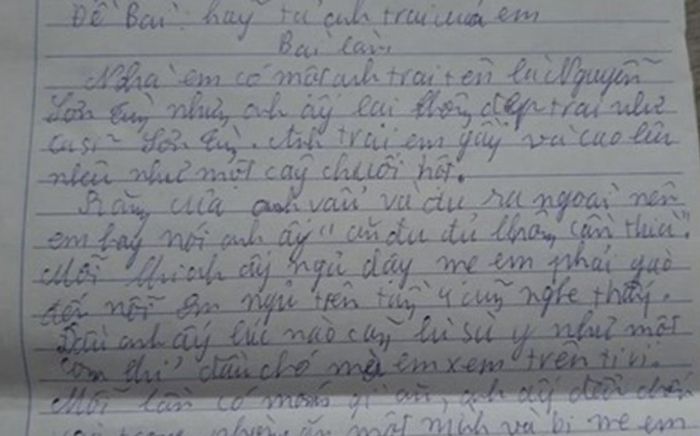 Đề Bài: hãy tả anh trai của em
Bài làm
Nhà em có một anh trai tên là Nguyễn
Sơn Tùng nhưng anh ấy lại không đẹp trai như
ca sĩ Sơn Tùng. Anh trai em gầy và cao lêu
nghêu như một cây chuối hột.
Răng của anh vẩu và đưa ra ngoài nên
em hay nói anh ấy "ăn đu đủ không cần thìa".
Mỗi khi anh ấy ngủ dậy mẹ em phải gào
đến nỗi em ngủ trên tầng 4 cũng nghe thấy.
Đầu anh ấy lúc nào cũng bù xù y như một
con đầu chó mà em xem trên ti vi.
Mỗi lần có món gì ăn, anh ấy đều
phòng ăn một mình và bị mẹ em